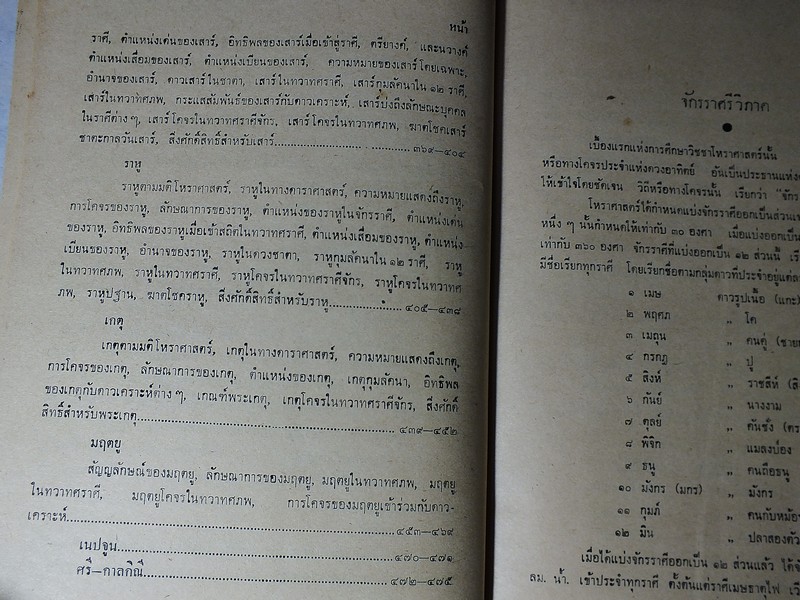 หน้า
ราศี, ตำแหน่งเด่นของเสาร์, อิทธิพลของเสาร์เมื่อเข้าสู่ราศี, ตรียางค์, และนวางค์
ตำแหน่งเสื่อมของเสาร์, ตำแหน่งเบียนของเสาร์, ความหมายของเสาร์โดยเฉพาะ,
อำนาจของเสาร์, ดาวเสาร์ในชาตา, เสาร์ในทวาทศราศี, เสาร์กุมลัคนาใน ๑๒ ราศี,
เสาร์ในทวาทศภพ, กระแสสัมพันธ์ของเสาร์กับดาวเคราะห์, เสาร์บ่งถึงลักษณะบุคคล
ในราศีต่าง ๆ, เสาร์โคจรในทวาทศราศีจักร, เสาร์โคจรในทวาทศภพ, ฆาตโชคเสาร์
ชาตะกาลวันเสาร์, สิ่งศักดิ์สิทธิ์สำหรับเสาร์.......................... ๓๖๙—๔๐๔
ราหู
ราหูตามมติโหราศาสตร์, ราหูในทางดาราศาสตร์, ความหมายแสดงถึงราหู,
การโคจรของราหู, ลักษณาการของราหู, ตำแหน่งของราหูในจักรราศี, ตำแหน่งเด่น
ของราหู, อิทธิพลของราหูเมื่อเข้าสถิตในทวาทศราศี, ตำแหน่งเสื่อมของราหู, ตำแหน่ง
เบียนของราหู, อำนาจของราหู, ราหูในดวงชาตา, ราหูกุมลัคนาใน ๑๒ ราศี, ราหู
ในทวาทศภพ, ราหูในทวาทศราศี, ราหูโคจรในทวาทศราศีจักร, ราหูโคจรในทวาทศ
ภพ, ราหูปฐาน, ฆาตโชคราหู, สิ่งศักดิ์สิทธิ์สำหรับราหู.................. ๔๐๕—๔๓๘
เกตุ
เกตุตามมติโหราศาสตร์, เกตุในทางดาราศาสตร์, ความหมายแสดงถึงเกตุ,
การโคจรของเกตุ, ลักษณาการของเกตุ, ตำแหน่งของเกตุ, เกตุกุมลัคนา, อิทธิพล
ของเกตุกับดาวเคราะห์ต่าง ๆ, เกณฑ์พระเกตุ, เกตุโคจรในทวาทศราศีจักร, สิ่งศักดิ์
สิทธิ์สำหรับพระเกตุ.......................................................... ๔๓๙—๔๕๒
มฤตยู
สัญญลักษณ์ของมฤตยู, ลักษณาการของมฤตยู, มฤตยูในทวาทศภพ, มฤตยู
ในทวาทศราศี, มฤตยูโคจรในทวาทศภพ, การโคจรของมฤตยูเข้าร่วมกับดาว-
เคราะห์.......................................................................... ๔๕๓—๔๖๙
เนปจูน.................................................................. ๔๗๐—๔๗๑
ศรี—กาลกิณี............................................................ ๔๗๒—๔๗๕
จักรราศรีวิภาค
เบื้องแรกแห่งการศึกษาวิชาโหราศาสตร์นั้น
หรือทางโคจรประจำแห่งดวงอาทิตย์ อันเป็นประธานแห่ง
ให้เข้าใจโดยชัดเจน วิถีหรือทางโคจรนั้น เรียกว่า “จักร
โหราศาสตร์ได้กำหนดแบ่งจักรราศีออกเป็นส่วน
หนึ่ง ๆ นั้นกำหนดให้เท่ากับ ๓๐ องศา เมื่อแบ่งออกเป็น
เท่ากับ ๓๖๐ องศา จักรราศีที่แบ่งออกเป็น ๑๒ ส่วนนี้
มีชื่อเรียกทุกราศี โดยเรียกชื่อตามกลุ่มดาวที่ประจำอยู่
๑ เมษ ดาวรูปเนื้อ (แกะ)
๒ พฤศภ „ โค
๓ เมถุน „ คนคู่ (ชาย
๔ กรกฎ „ ปู
๕ สิงห์ „ ราชสีห์
๖ กันย์ „ นางงาม
๗ ตุลย์ „ คันชั่ง
๘ พิจิก „ แมลงป่อง
๙ ธนู „ คนถือธนู
๑๐ มังกร (มกร) „ มังกร
๑๑ กุมภ์ „ คนกับหม้อ
๑๒ มีน „ ปลาสองตัว
เมื่อได้แบ่งจักรราศีออกเป็น ๑๒ ส่วนแล้ว
ลม. น้ำ. เข้าประจำทุกราศี ตั้งต้นแต่ราศีเมษธาตุไฟ